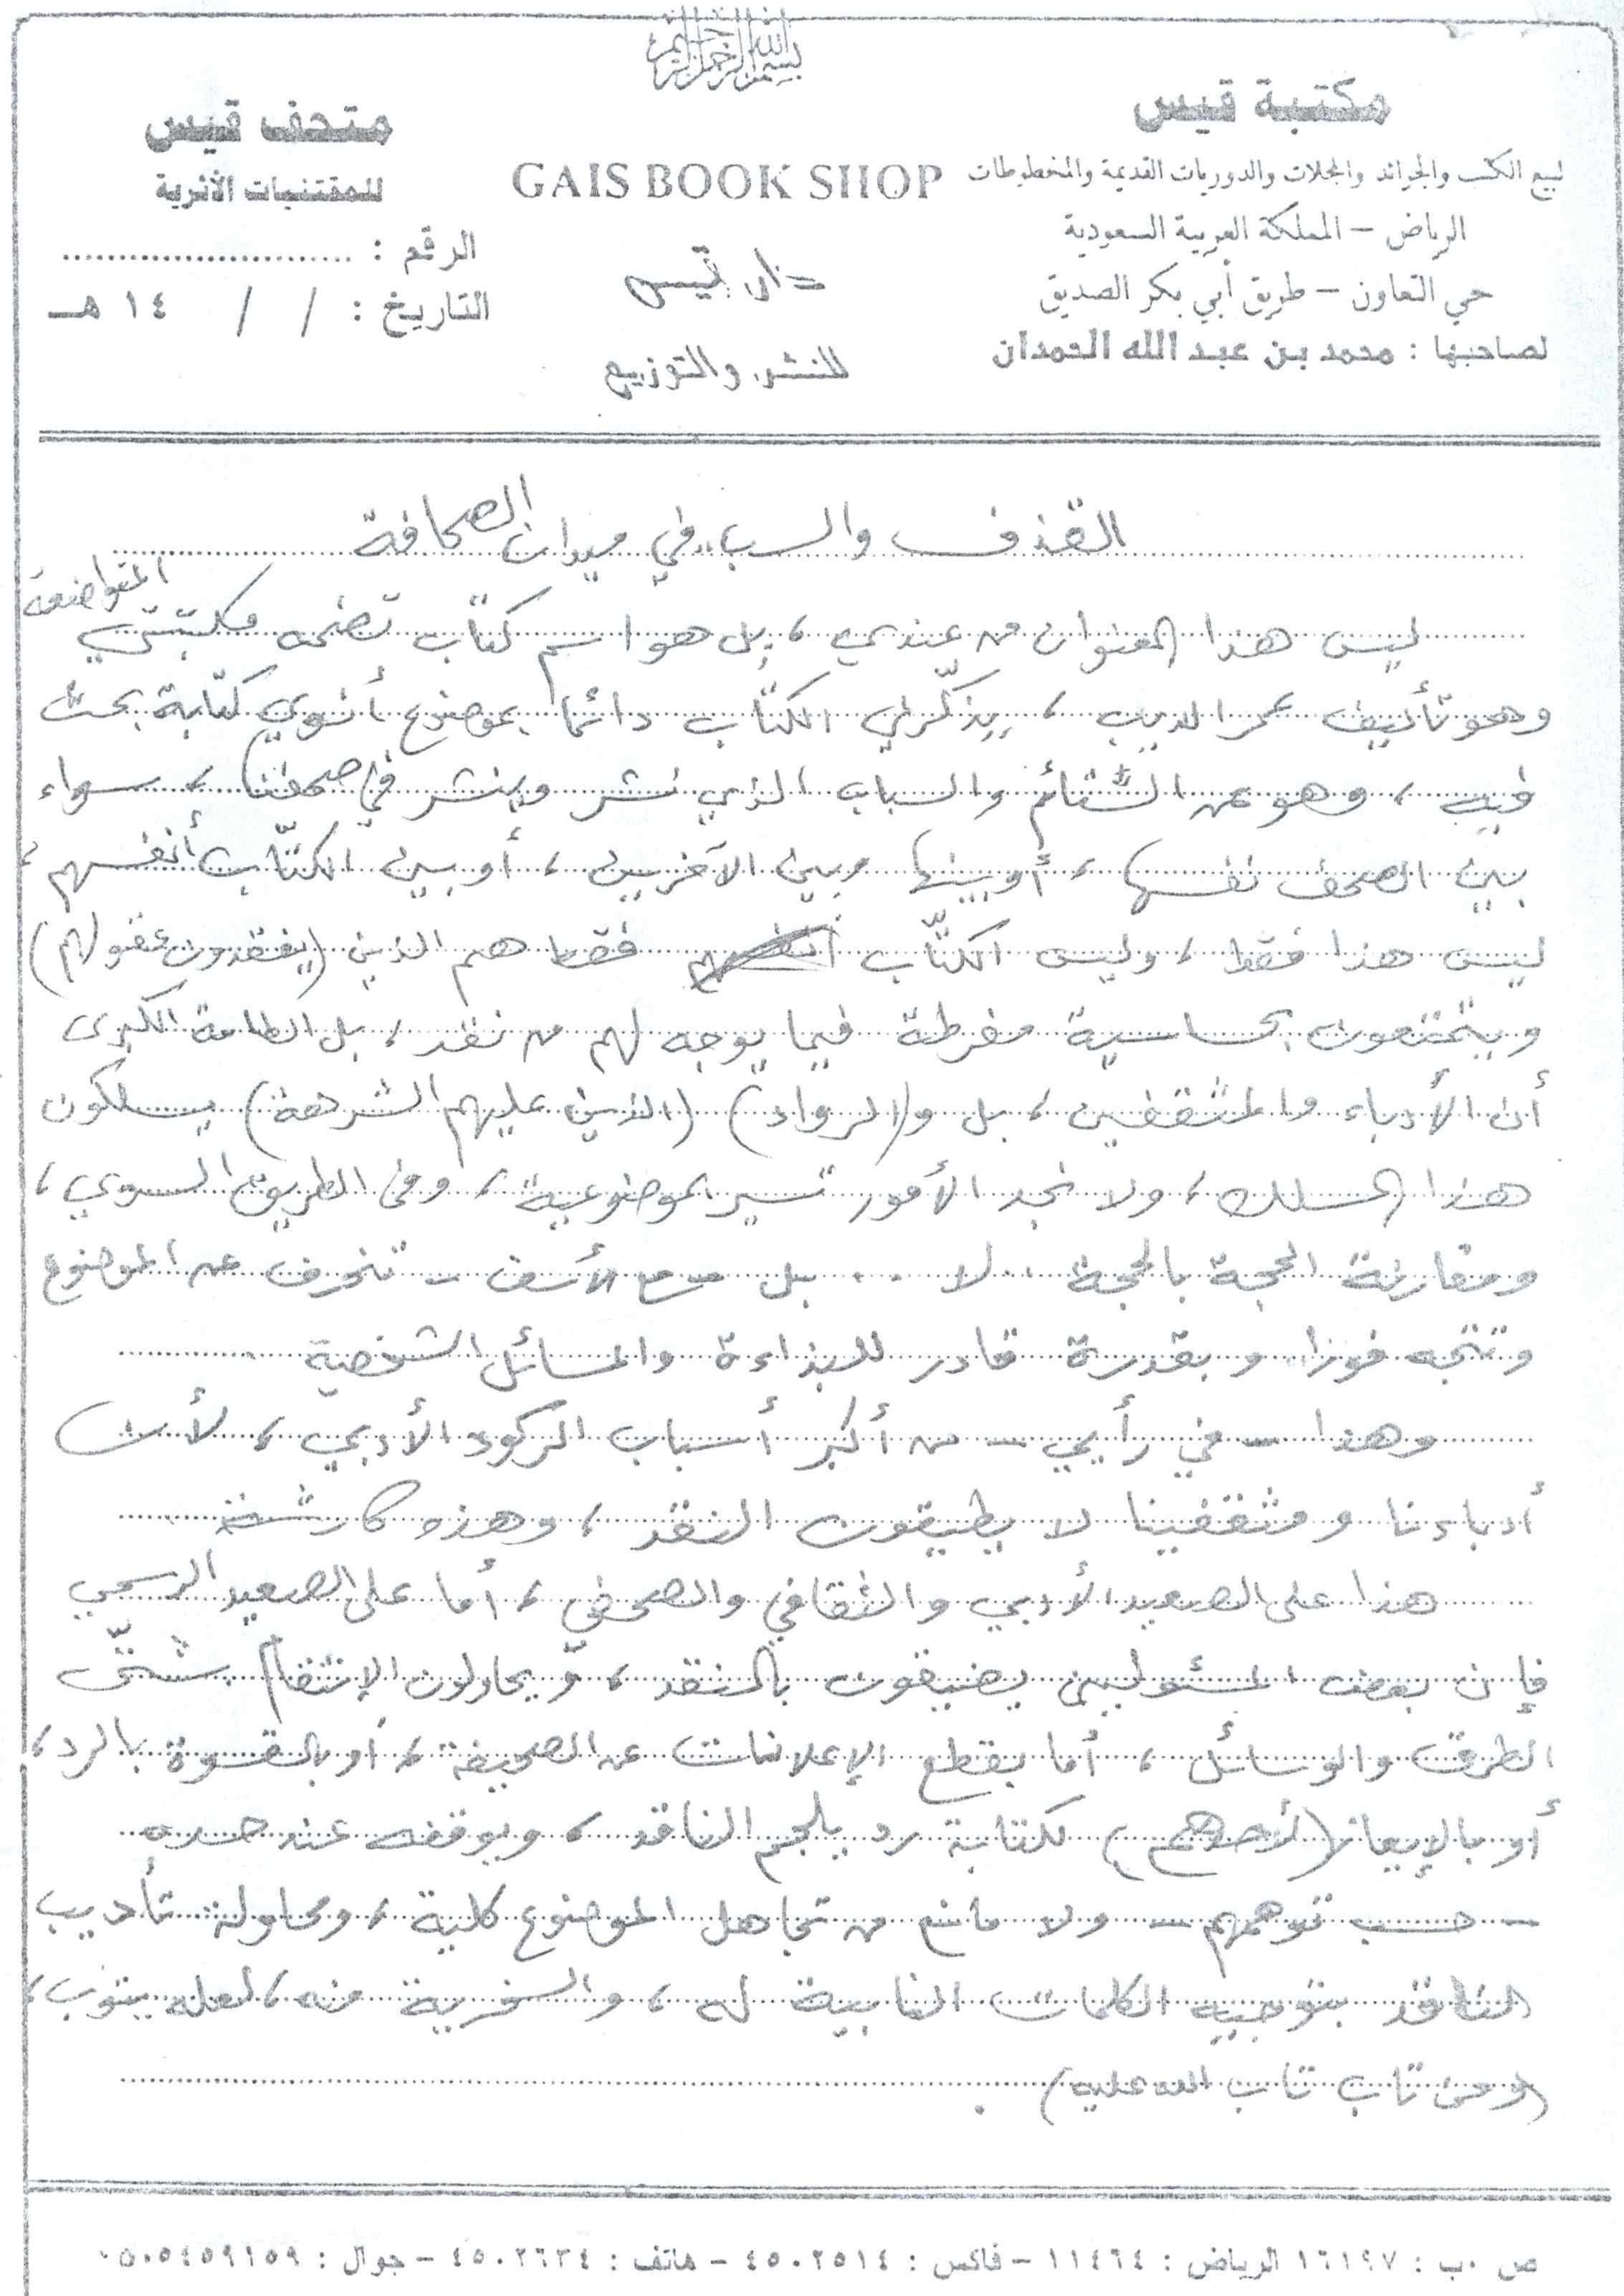 بسم الله الرحمن الرحيم
مكتبة قيس
لبيع الكتب والجرائد والمجلات والدوريات القديمة والمخطوطات
الرياض – المملكة العربية السعودية
حي التعاون – طريق أبي بكر الصديق
لصاحبها : محمد بن عبد الله الحمدان
GAIS BOOK SHOP
دار قيس
للنشر والتوزيع
متحف قيس
للمقتنيات الأثرية
الرقم : ..........................
التاريخ :   /   /   ١٤ هـ
القذف والسب في ميدان الصحافة
ليس هذا العنوان من عندي ، بل هو اسم كتاب تضمه مكتبتي المتواضعة
وهو تأليف عمر الديب ، يذكّرني الكتاب دائما بموضوع أنوي كتابة بحث
فيه ، وهو عن الشتائم والسباب الذي نشر وينشر في صحفنا ، سواء
بين الصحف نفسها ، أو بينها وبين الآخرين ، أو بين الكتّاب أنفسهم ،
ليس هذا فقط ، وليس الكتّاب فقط هم الذين (يفقدون عقولهم)
ويتمتعون بحاسية مفرطة فيما يوجه لهم من نقد ، بل الطامة الكبرى
أن الأدباء والمثقفين ، بل و(الرواد) (الذين عليهم الشرهة) يسلكون
هذا المسلك ، ولا نجد الأمور تسير بموضوعية ، وفي الطريق السوي ،
ومقارنة الحجة بالحجة .. لا .. بل – مع الأسف – تنحرف عن الموضوع
وتتجه فورا وبقدرة قادر للبذاءة والمسائل الشخصية
وهذا – في رأيي – من أكبر أسباب الركود الأدبي ، لأن
أدباءنا ومثقفينا لا يطيقون النقد ، وهذه كارثة
هذا على الصعيد الأدبي والثقافي والصحفي ، أما على الصعيد الرسمي
فإن بعض المسئولين يضيقون بالنقد ، ويحاولون الإنتقام بشتّى
الطرق والوسائل ، أما بقطع الإعلانات عن الصحيفة ، أو بالقسوة بالرد ،
أو بالإيعاز (لأحدهم) لكتابة رد يلجم الناقد ، ويوقفه عند حده
– حسب توهمهم – ولا مانع من تجاهل الموضوع كلية ، ومحاولة تأديب
الناقد بتوجيه الكلمات النابية له ، والسخرية منه ، لعله يتوب ،
(ومن تاب تاب الله عليه) .
ص . ب : ١٦١٩٧ الرياض : ١١٤٦٤ – فاكس : ٤٥٠٢٥١٤ – هاتف : ٤٥٠٢٦٣٤ – جوال : ٠٥٠٥٤٥٩١٥٩